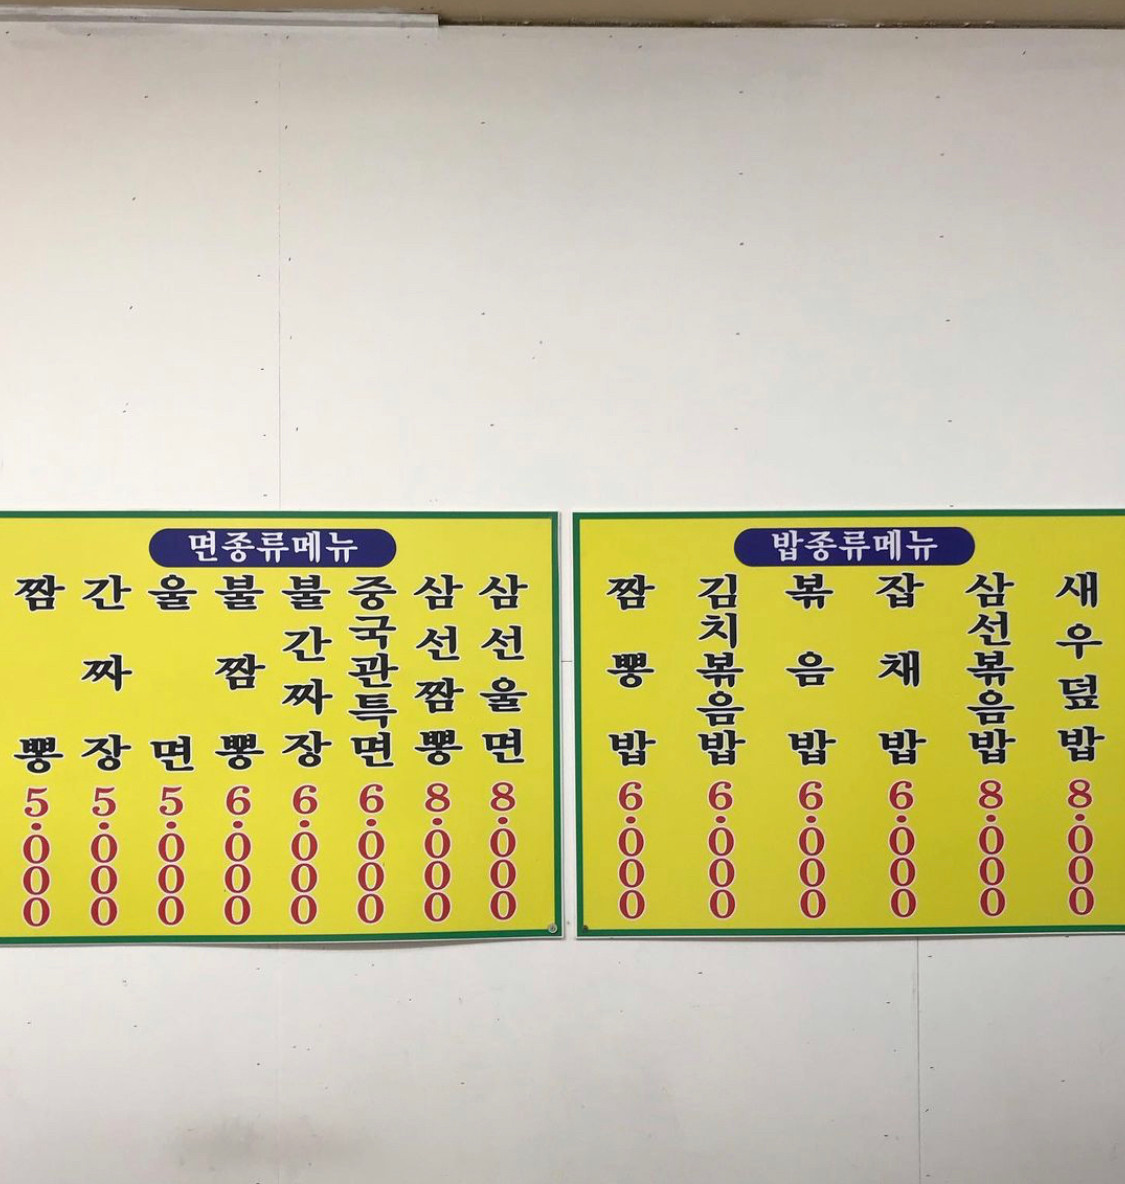 면종류메뉴
짬뽕 5.000
간짜장 5.000
울면 5.000
불짬뽕 6.000
불간짜장 6.000
중국관특면 6.000
삼선짬뽕 8.000
삼선울면 8.000
밥종류메뉴
짬뽕밥 6.000
김치볶음밥 6.000
볶음밥 6.000
잡채밥 6.000
삼선볶음밥 8.000
새우덮밥 8.000